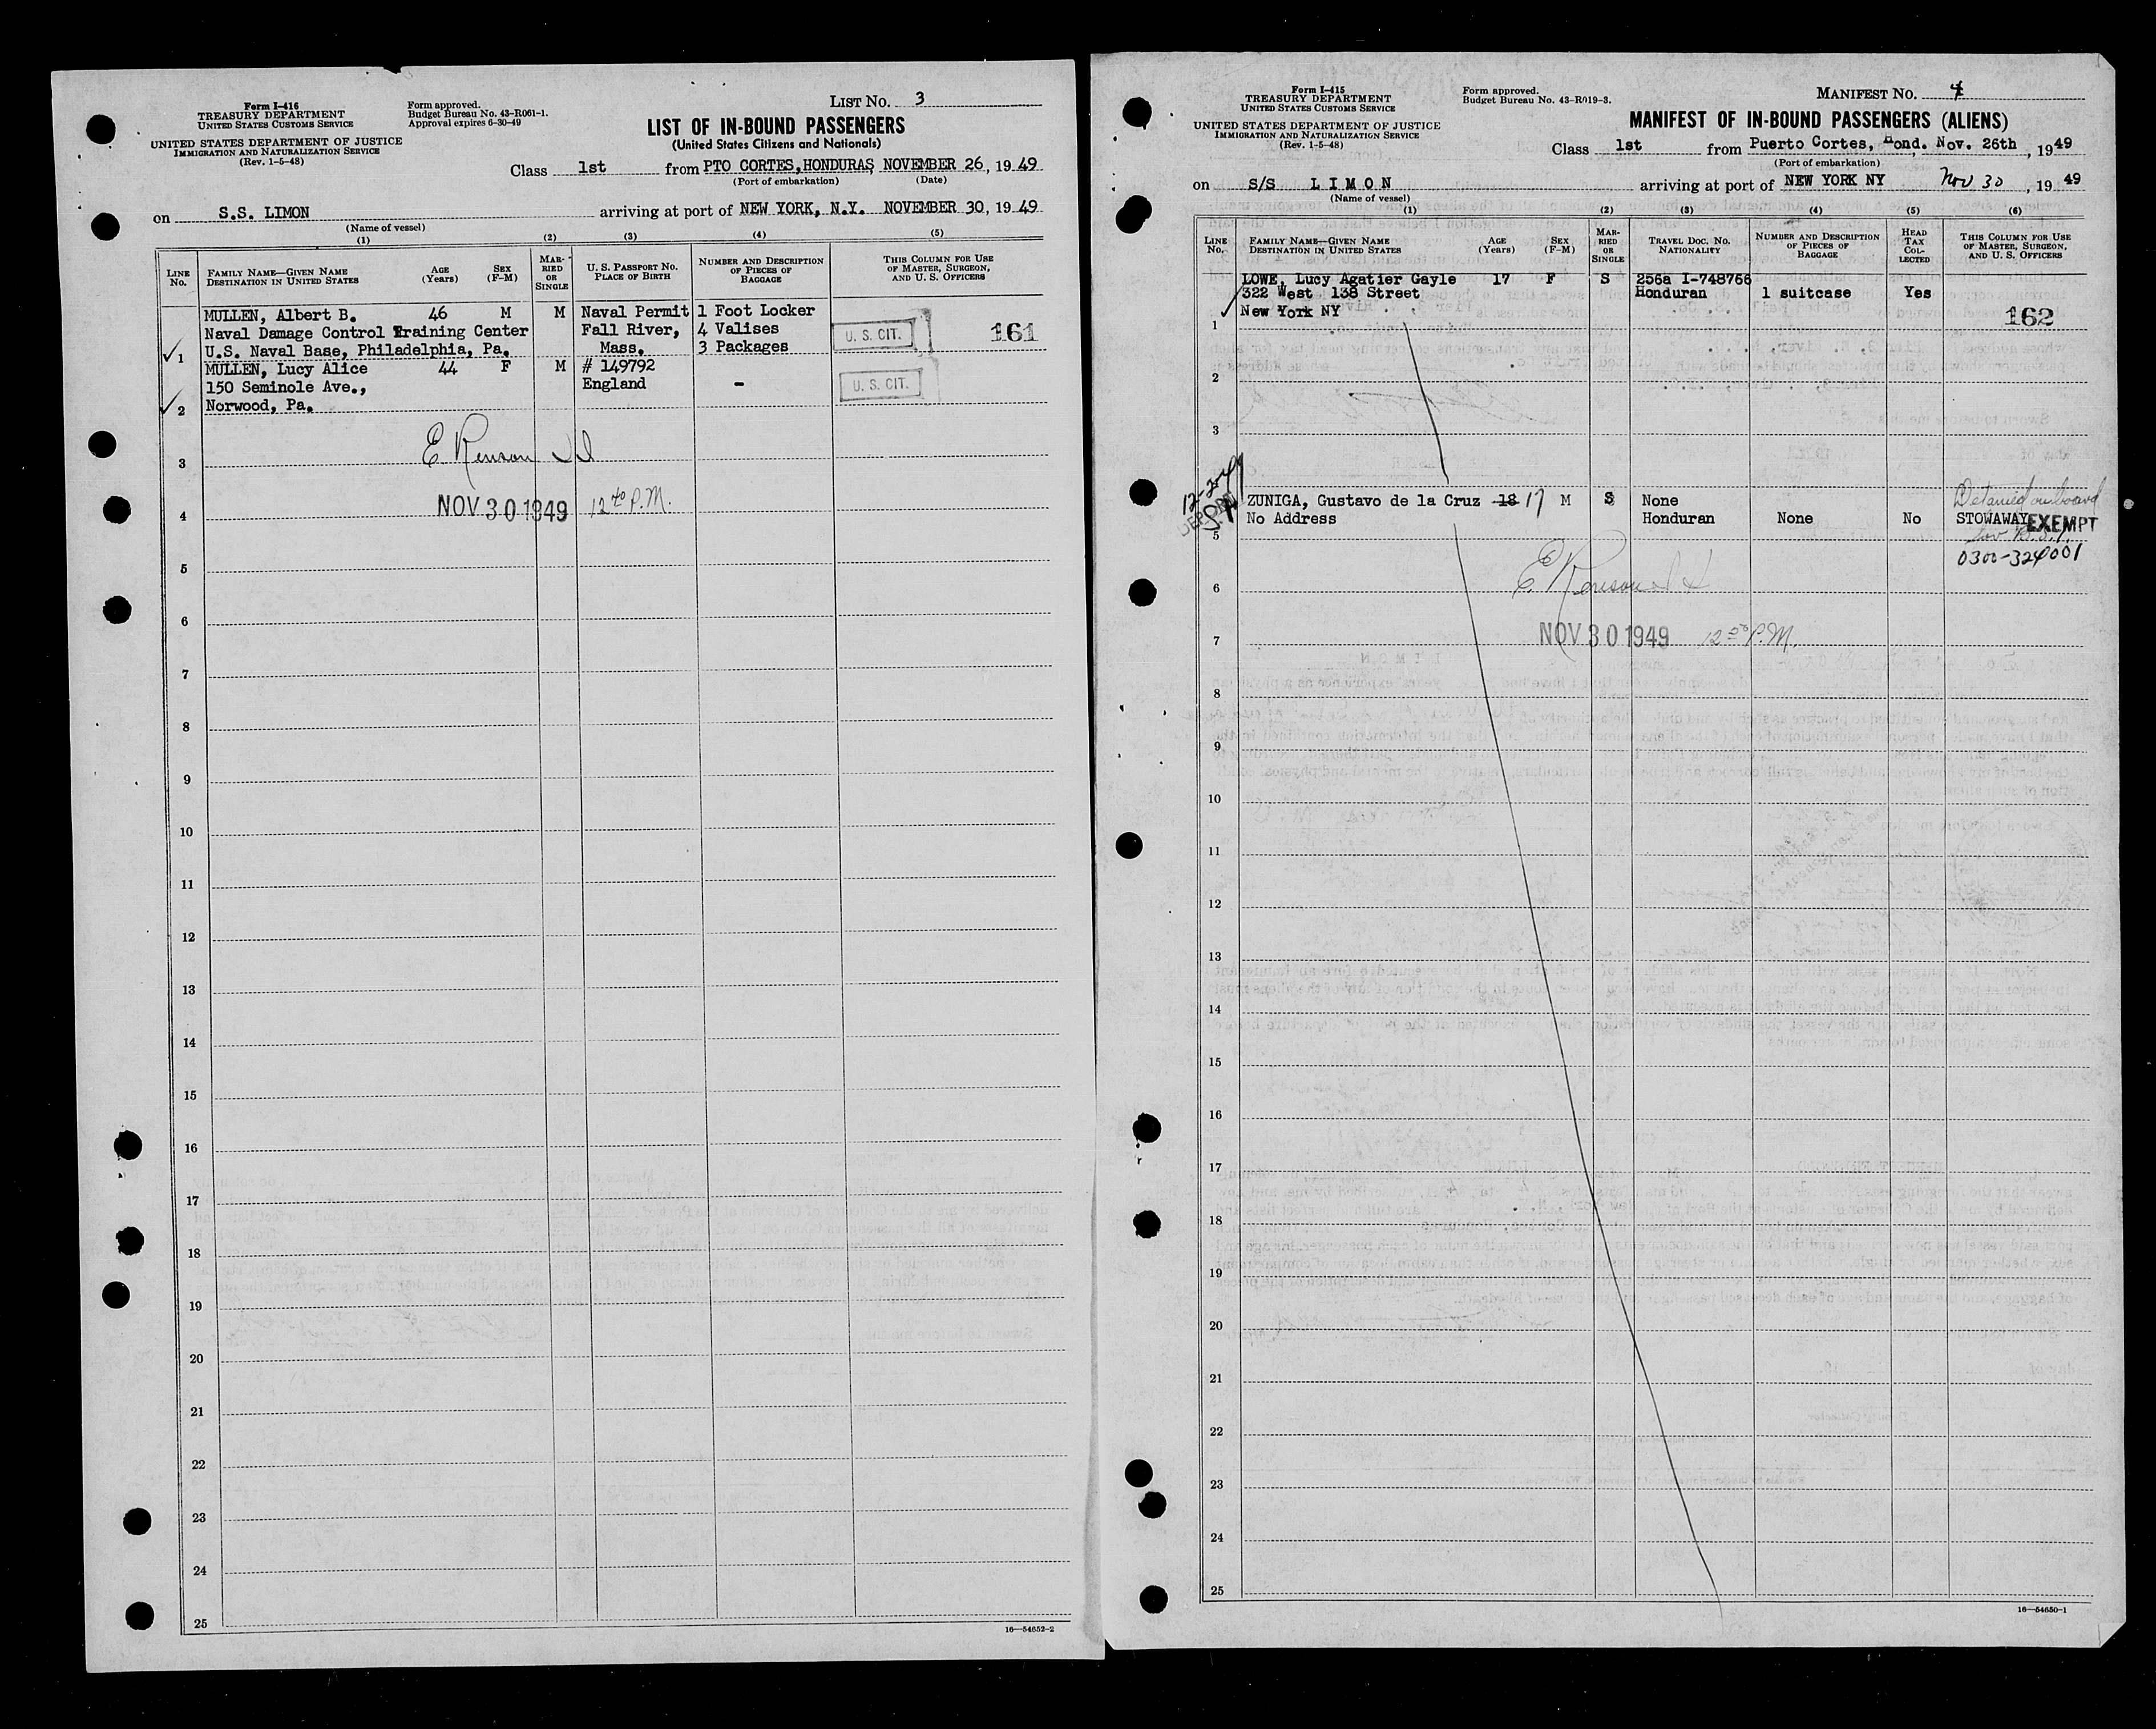 Form I-416
TREASURY DEPARTMENT
UNITED STATES CUSTOMS SERVICE
UNITED STATES DEPARTMENT OF JUSTICE
IMMIGRATION AND NATURALIZATION SERVICE
(Rev. 1-5-48)
Form approved.
Budget Bureau No. 43-R061-1.
Approval expires 6-30-49
LIST NO. 3
LIST OF IN-BOUND PASSENGERS
(United States Citizens and Nationals)
Class 1st from PTO CORTES, HONDURAS, NOVEMBER 26, 1949
(Port of embarkation) (Date)
on S.S. LIMON arriving at port of NEW YORK, N.Y. NOVEMBER 30, 1949
(Name of vessel)
(1) (2) (3) (4) (5)
LINE No.
FAMILY NAME—GIVEN NAME
DESTINATION IN UNITED STATES
AGE (Years)
SEX (F-M)
MARRIED OR SINGLE
U. S. PASSPORT NO.
PLACE OF BIRTH
NUMBER AND DESCRIPTION OF PIECES OF BAGGAGE
THIS COLUMN FOR USE OF MASTER, SURGEON, AND U. S. OFFICERS
MULLEN, Albert B. 46 M M Naval Permit 1 Foot Locker
Naval Damage Control Training Center Fall River, 4 Valises U. S. CIT. 161
1 U.S. Naval Base, Philadelphia, Pa. Mass. 3 Packages
MULLEN, Lucy Alice 44 F M # 149792
150 Seminole Ave., England - U. S. CIT.
2 Norwood, Pa.
3 E Renson
4 NOV 30 1949 12 40 P.M.
5
6
7
8
9
10
11
12
13
14
15
16
17
18
19
20
21
22
23
24
25
16—54652-2
Form I-415
TREASURY DEPARTMENT
UNITED STATES CUSTOMS SERVICE
UNITED STATES DEPARTMENT OF JUSTICE
IMMIGRATION AND NATURALIZATION SERVICE
(Rev. 1-5-48)
Form approved.
Budget Bureau No. 43-R019-3.
MANIFEST NO. 4
MANIFEST OF IN-BOUND PASSENGERS (ALIENS)
Class 1st from Puerto Cortes, Hond. Nov. 26th, 1949
(Port of embarkation)
on S/S LIMON arriving at port of NEW YORK NY Nov 30, 1949
(Name of vessel)
(1) (2) (3) (4) (5) (6)
LINE No.
FAMILY NAME—GIVEN NAME
DESTINATION IN UNITED STATES
AGE (Years)
SEX (F-M)
MARRIED OR SINGLE
TRAVEL DOC. NO.
NATIONALITY
NUMBER AND DESCRIPTION OF PIECES OF BAGGAGE
HEAD TAX COLLECTED
THIS COLUMN FOR USE OF MASTER, SURGEON, AND U. S. OFFICERS
LOWE, Lucy Agatier Gayle 17 F S 256a I-748766
322 West 138 Street Honduran 1 suitcase Yes
1 New York NY 162
2
3
ZUNIGA, Gustavo de la Cruz 18 17 M S None Detained on board
No Address Honduran None No STOWAWAY EXEMPT
for B.S.I.
5 0300-324001
6 E Renson
7 NOV 30 1949 12 P.M.
8
9
10
11
12
13
14
15
16
17
18
19
20
21
22
23
24
25
16—54650-1